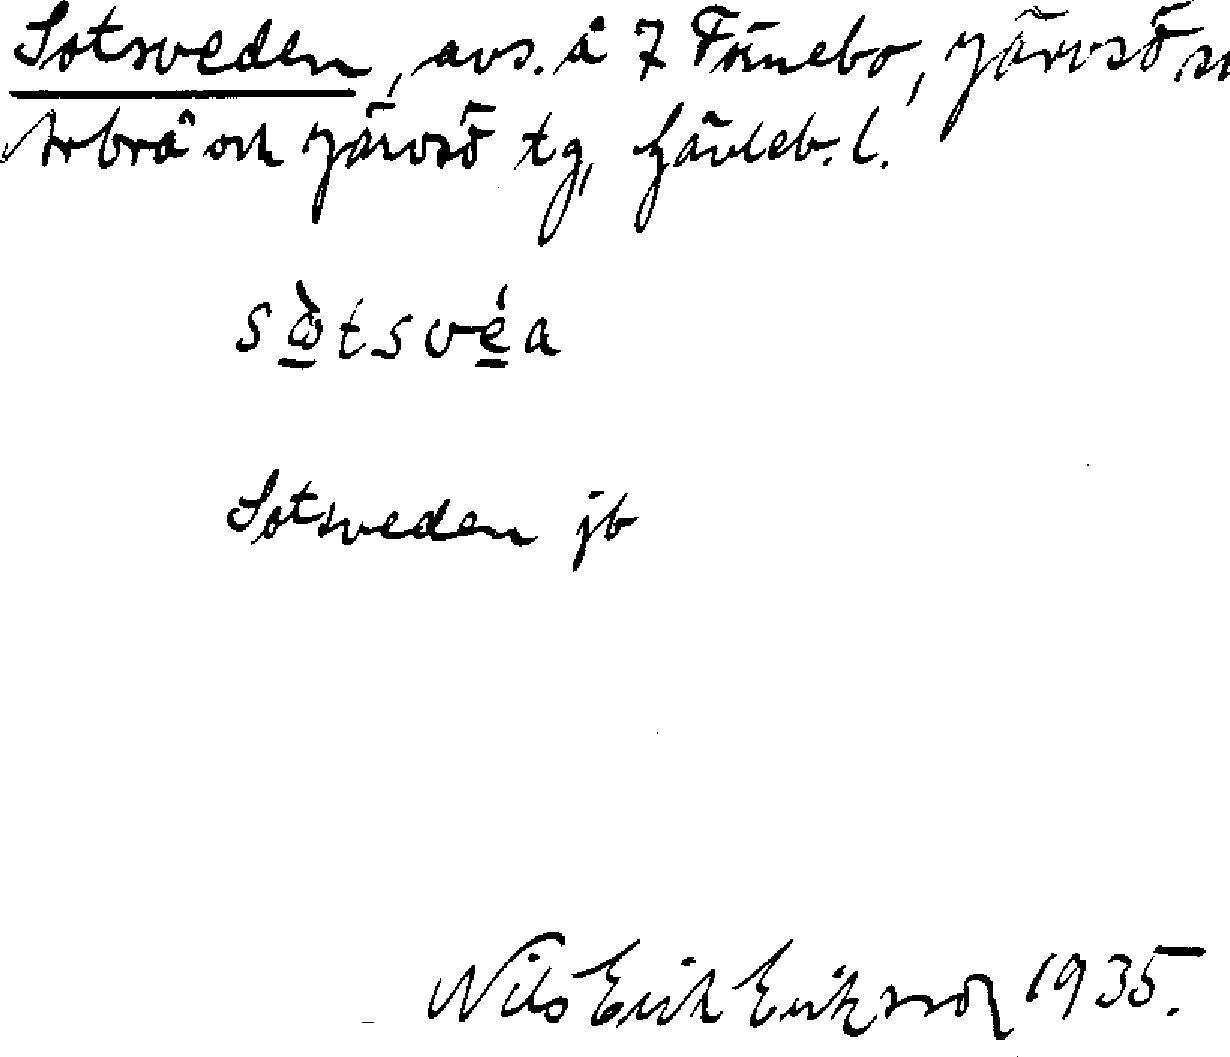 Sotsveden, avs. å 7 Fönebo, Järvsö sn
Arbrå och Järvsö tg, Gävleb. l.
sὼtsvéa
Sotsveden jb
Nils Erik Eriksson 1935.